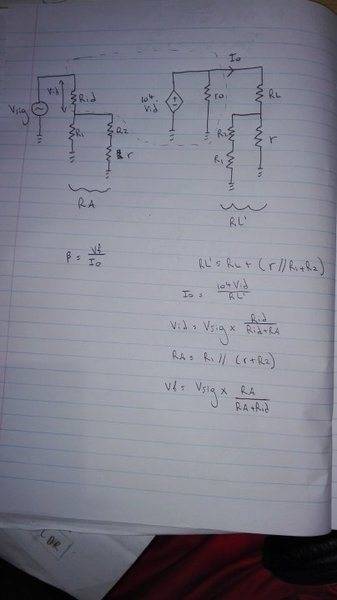 Io
Vid
Rid
Vsig
R1
R2
r
RA
104
Vid
ro
RL
R2
R1
r
RL'
β = Vf/Io
RL' = RL + (r // R1+R2)
Io = 104Vid/RL'
Vid = Vsig x Rid/Rid+RA
RA = R1 // (r+R2)
Vf = Vsig x RA/RA+Rid